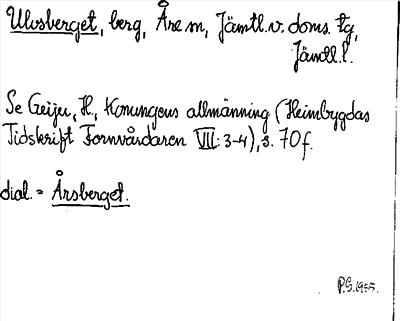 Ulvsberget, berg, Åre sn, Jämtl. v. doms. tg,
Jämtl. l.
Se Geijer, H., Konungens allmänning (Heimbygdas
Tidskrift Fornvårdaren VII: 3-4), s. 70 f.
dial. = Årsberget.
P.S. 1955.